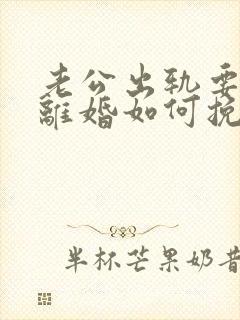 老公出轨要
離婚如何挽
半杯芒果奶昔